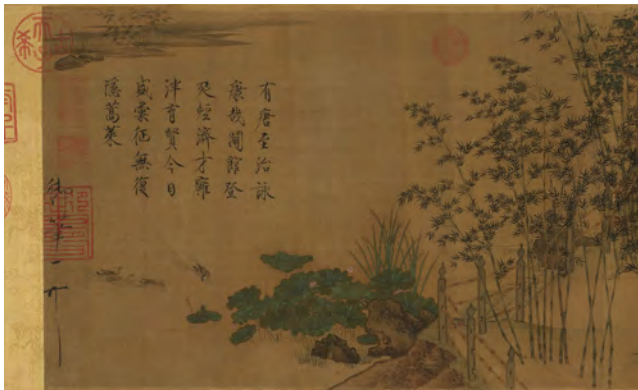 有唐至治詠
康哉闢館登
延經濟才雍
泮育賢今日
盛彙征無復
隱蒿萊
御筆